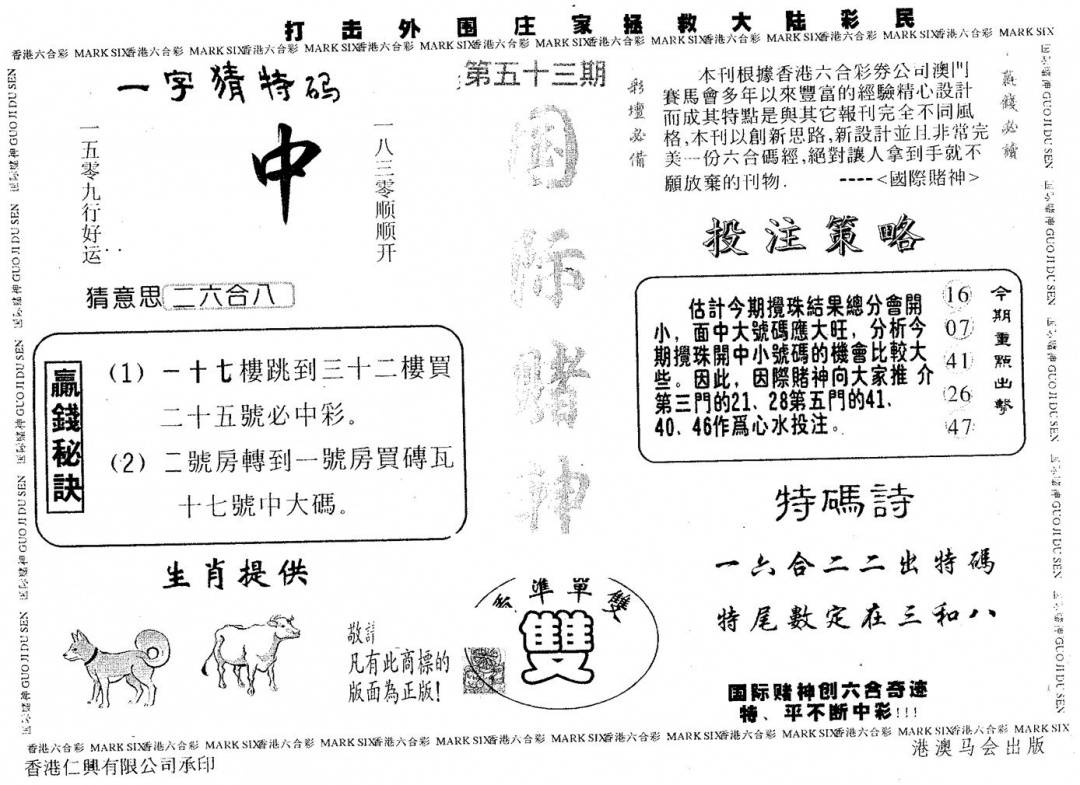 打击外围庄家拯救大陆彩民
香港六合彩 MARK SIX香港六合彩 MARK SIX香港六合彩 MARK SIX香港六合彩 MARK SIX香港六合彩 MARK SIX香港六合彩 MARK SIX香港六合彩 MARK SIX香港六合彩 MARK SIX香港六合彩 MARK SIX
一字猜特码
一五零九行好运
中
一八三零顺顺开
猜意思 二六合八
第五十三期
国际赌神
彩壇必備
本刊根據香港六合彩券公司澳門
賽馬會多年以來豐富的經驗精心設計
而成其特點是與其它報刊完全不同風
格,本刊以創新思路,新設計並且非常完
美一份六合碼經,絕對讓人拿到手就不
願放棄的刊物. ----<國際賭神>
贏錢必讀
贏錢秘訣
(1) 一十七樓跳到三十二樓買
二十五號必中彩。
(2) 二號房轉到一號房買磚瓦
十七號中大碼。
投注策略
估計今期攪珠結果總分會開
小，面中大號碼應大旺，分析今
期攪珠開中小號碼的機會比較大
些。因此，因際賭神向大家推 介
第三門的21、28第五門的41、
40、46作爲心水投注。
16
07
41
26
47
今期重點出擊
生肖提供
敬請
凡有此商標的
版面為正版!
準單雙
雙
特碼詩
一六合二二出特碼
特尾數定在三和八
国际赌神创六合奇迹
特、平不断中彩!!!
GUO JI DU SEN
香港六合彩 MARK SIX香港六合彩 MARK SIX香港六合彩 MARK SIX香港六合彩 MARK SIX香港六合彩 MARK SIX香港六合彩 MARK SIX香港六合彩 MARK SIX香港六合彩 MARK SIX香港六合彩 MARK SIX
香港仁興有限公司承印
港澳马会出版